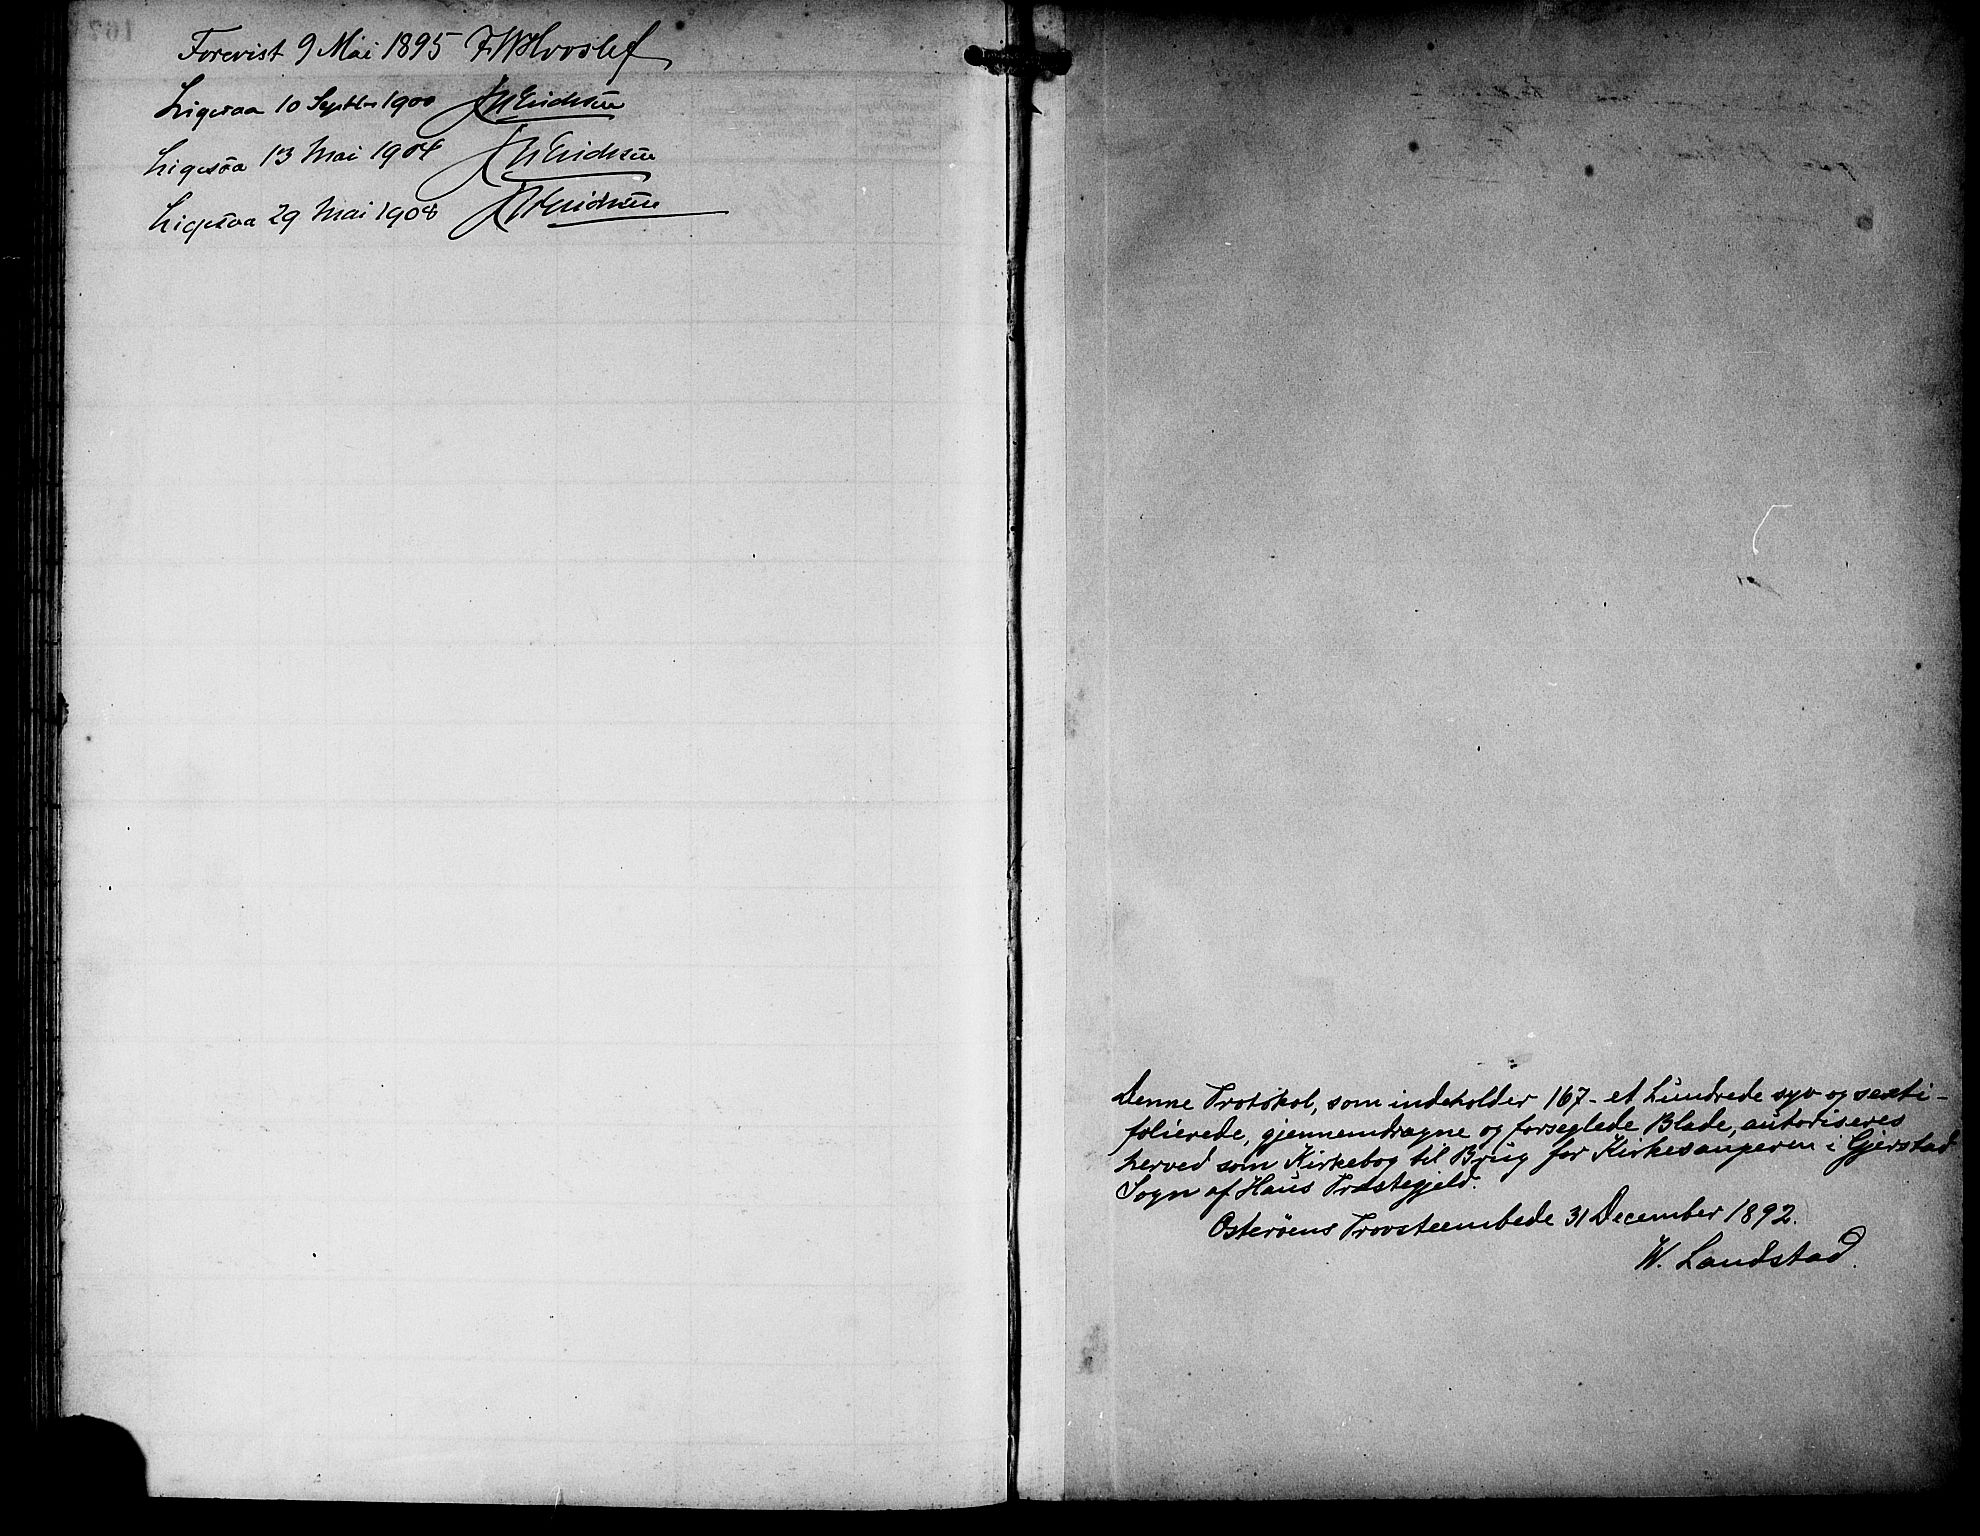 Forevist 9 Mai 1895 F. W. Hvoslef
Ligesaa 10 Septbr 1900 Erichsen
Ligesaa 13 Mai 1904 Erichsen
Ligesaa 29 Mai 1908 Erichsen
Denne Protokol, som indeholder 167 - et hundrede syv og sexti -
folierede, gjennemdragne og forseglede Blade, autoriseres
herved som Kirkebog til Brug for Kirkesangeren i Gjerstad
Sogn af Haus Præstegjeld.
Osterøens Provsteembede 31 December 1892.
W. Landstad.